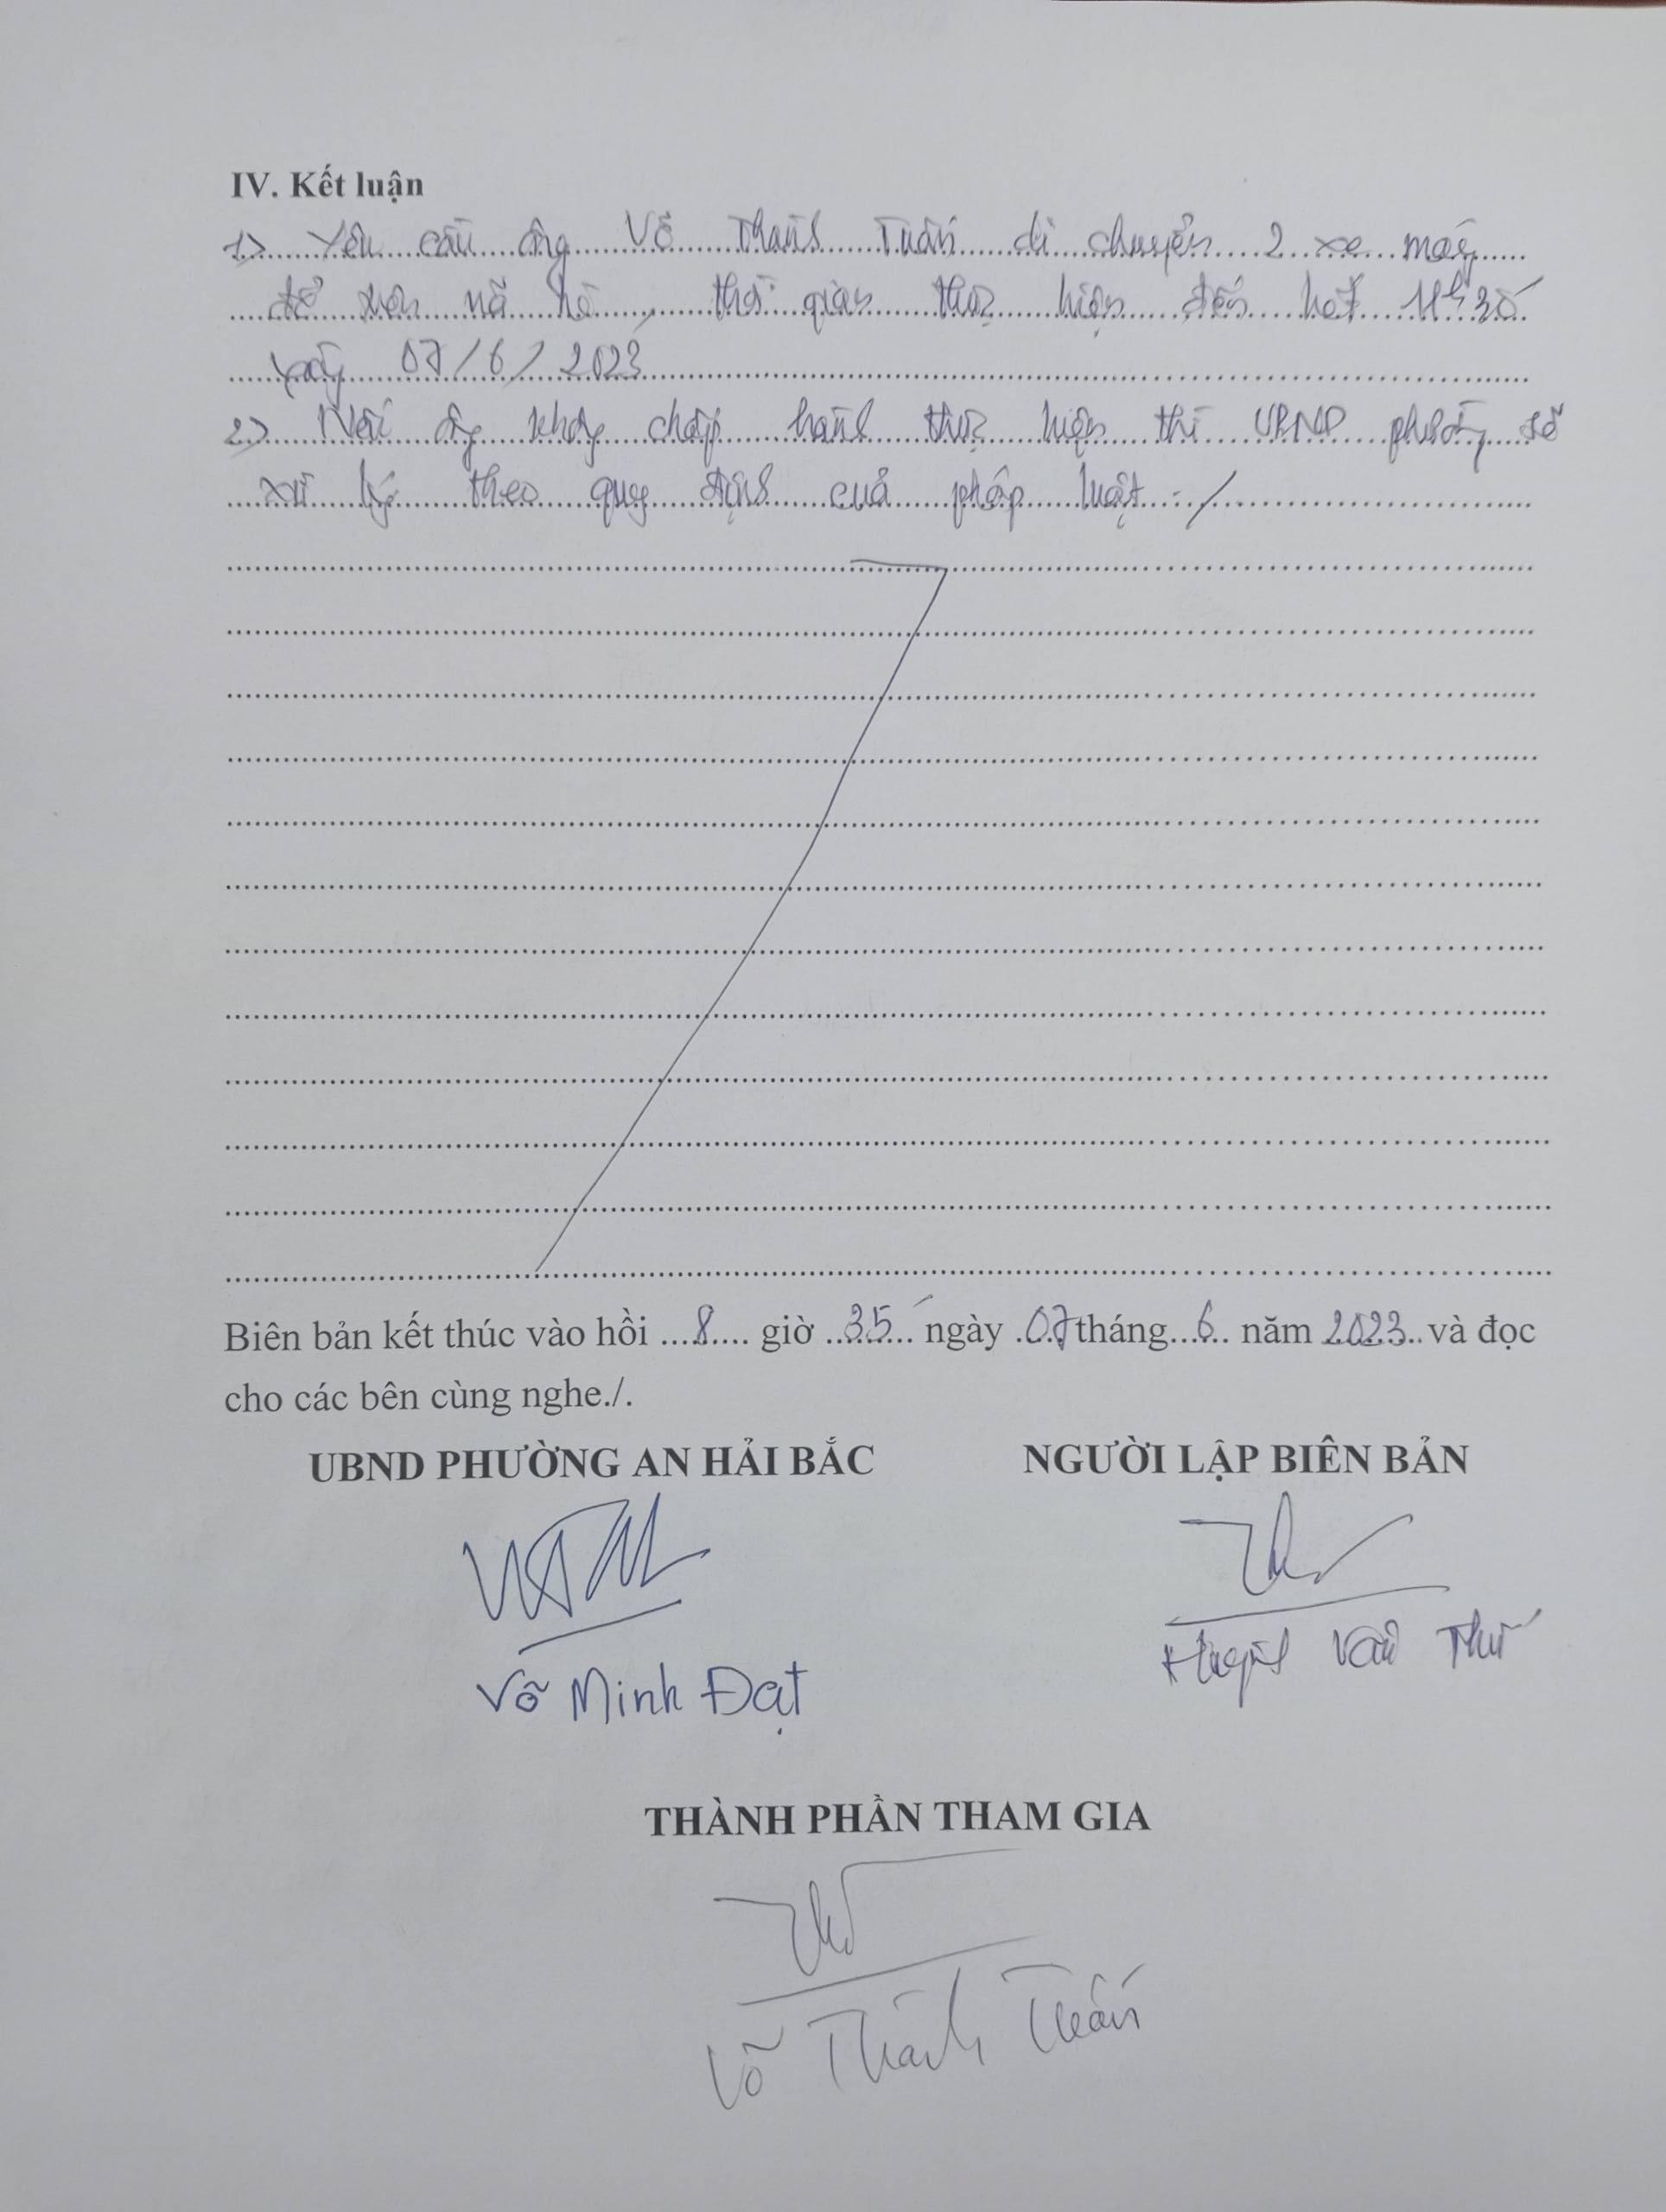 IV. Kết luận
1) Yêu cầu ông Võ Thành Tuấn di chuyển 2 xe máy
để trên vỉa hè, thời gian thực hiện đến hết 11h30
ngày 07/6/2023
2) Nếu ông không chấp hành thực hiện thì UBND phường sẽ
xử lý theo quy định của pháp luật ./
Biên bản kết thúc vào hồi ....8.... giờ ..35.. ngày .07 tháng...6.. năm 2023.. và đọc
cho các bên cùng nghe./.
UBND PHƯỜNG AN HẢI BẮC NGƯỜI LẬP BIÊN BẢN
Võ Minh Đạt Huỳnh Văn Thư
THÀNH PHẦN THAM GIA
Võ Thành Tuấn